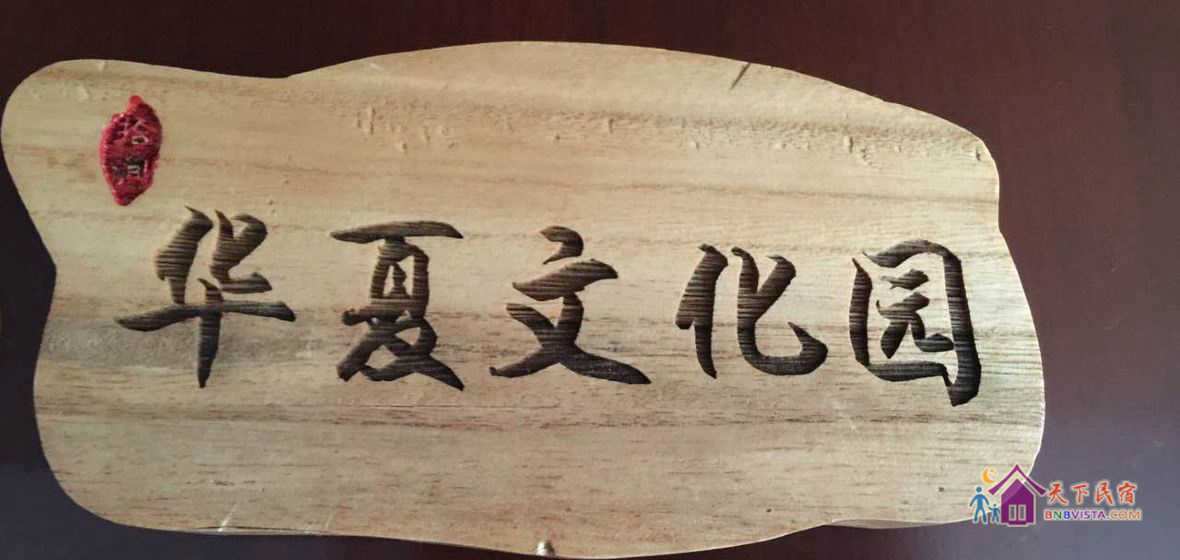 华夏文化园
天下民宿
BNBVISTA.COM